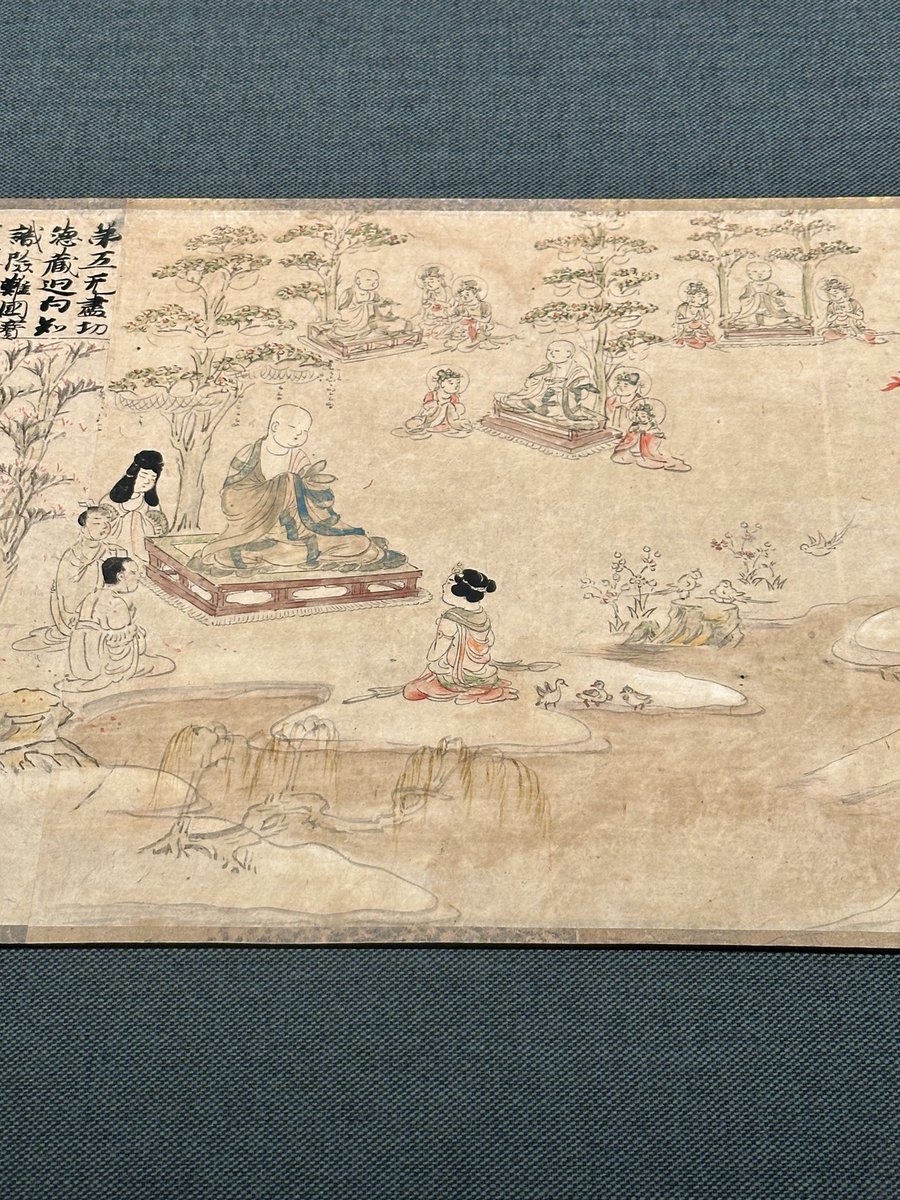 第五无盡功
德蔵迴向知
識險難國寶